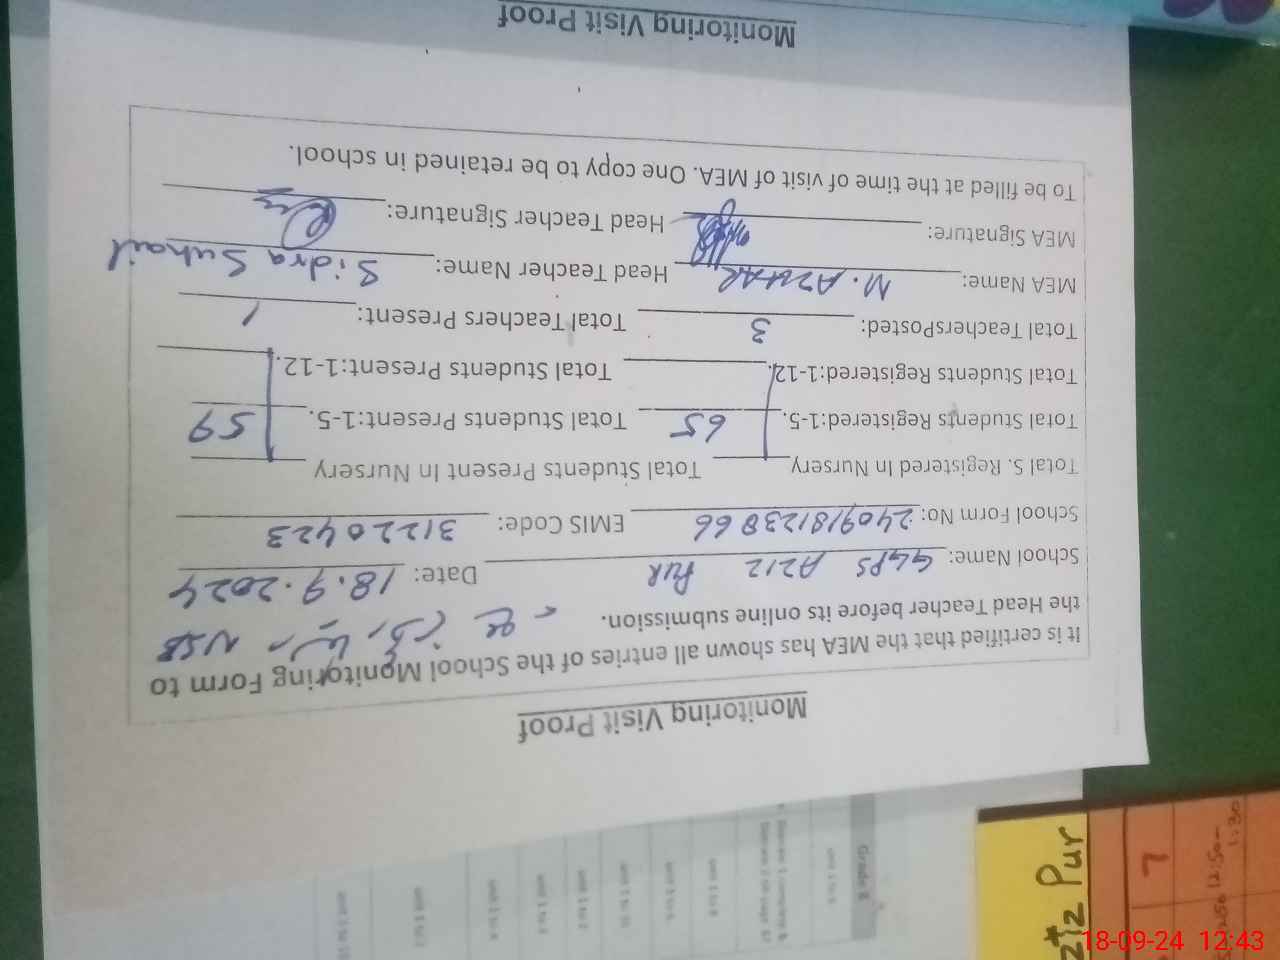 Monitoring Visit Proof
It is certified that the MEA has shown all entries of the School Monitoring Form to
the Head Teacher before its online submission. NSB
School Name: GGPS AZIZ PUR Date: 18.9.2024
School Form No: 240918123866 EMIS Code: 31220423
Total S. Registered In Nursery Total Students Present In Nursery
Total Students Registered:1-5. 65 Total Students Present:1-5. 59
Total Students Registered:1-12. Total Students Present:1-12.
Total TeachersPosted: 3 Total Teachers Present: 1
MEA Name: M. AZHAR Head Teacher Name: Sidra Suhail
MEA Signature: Head Teacher Signature:
To be filled at the time of visit of MEA. One copy to be retained in school.
Monitoring Visit Proof
Pur
7
12:50-
1:30
18-09-24 12:43